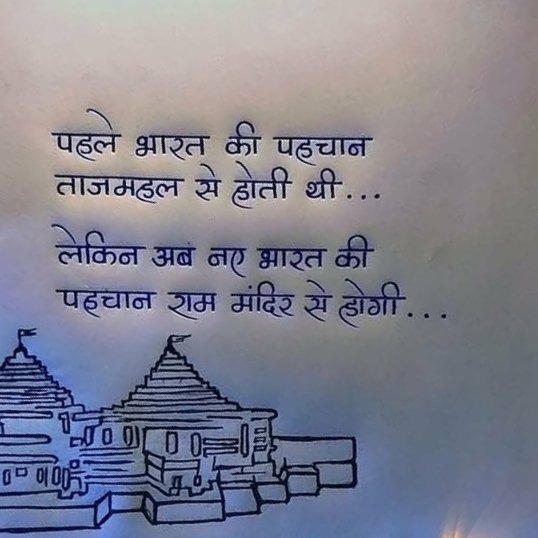 पहले भारत की पहचान
ताजमहल से होती थी...
लेकिन अब नए भारत की
पहचान राम मंदिर से होगी...